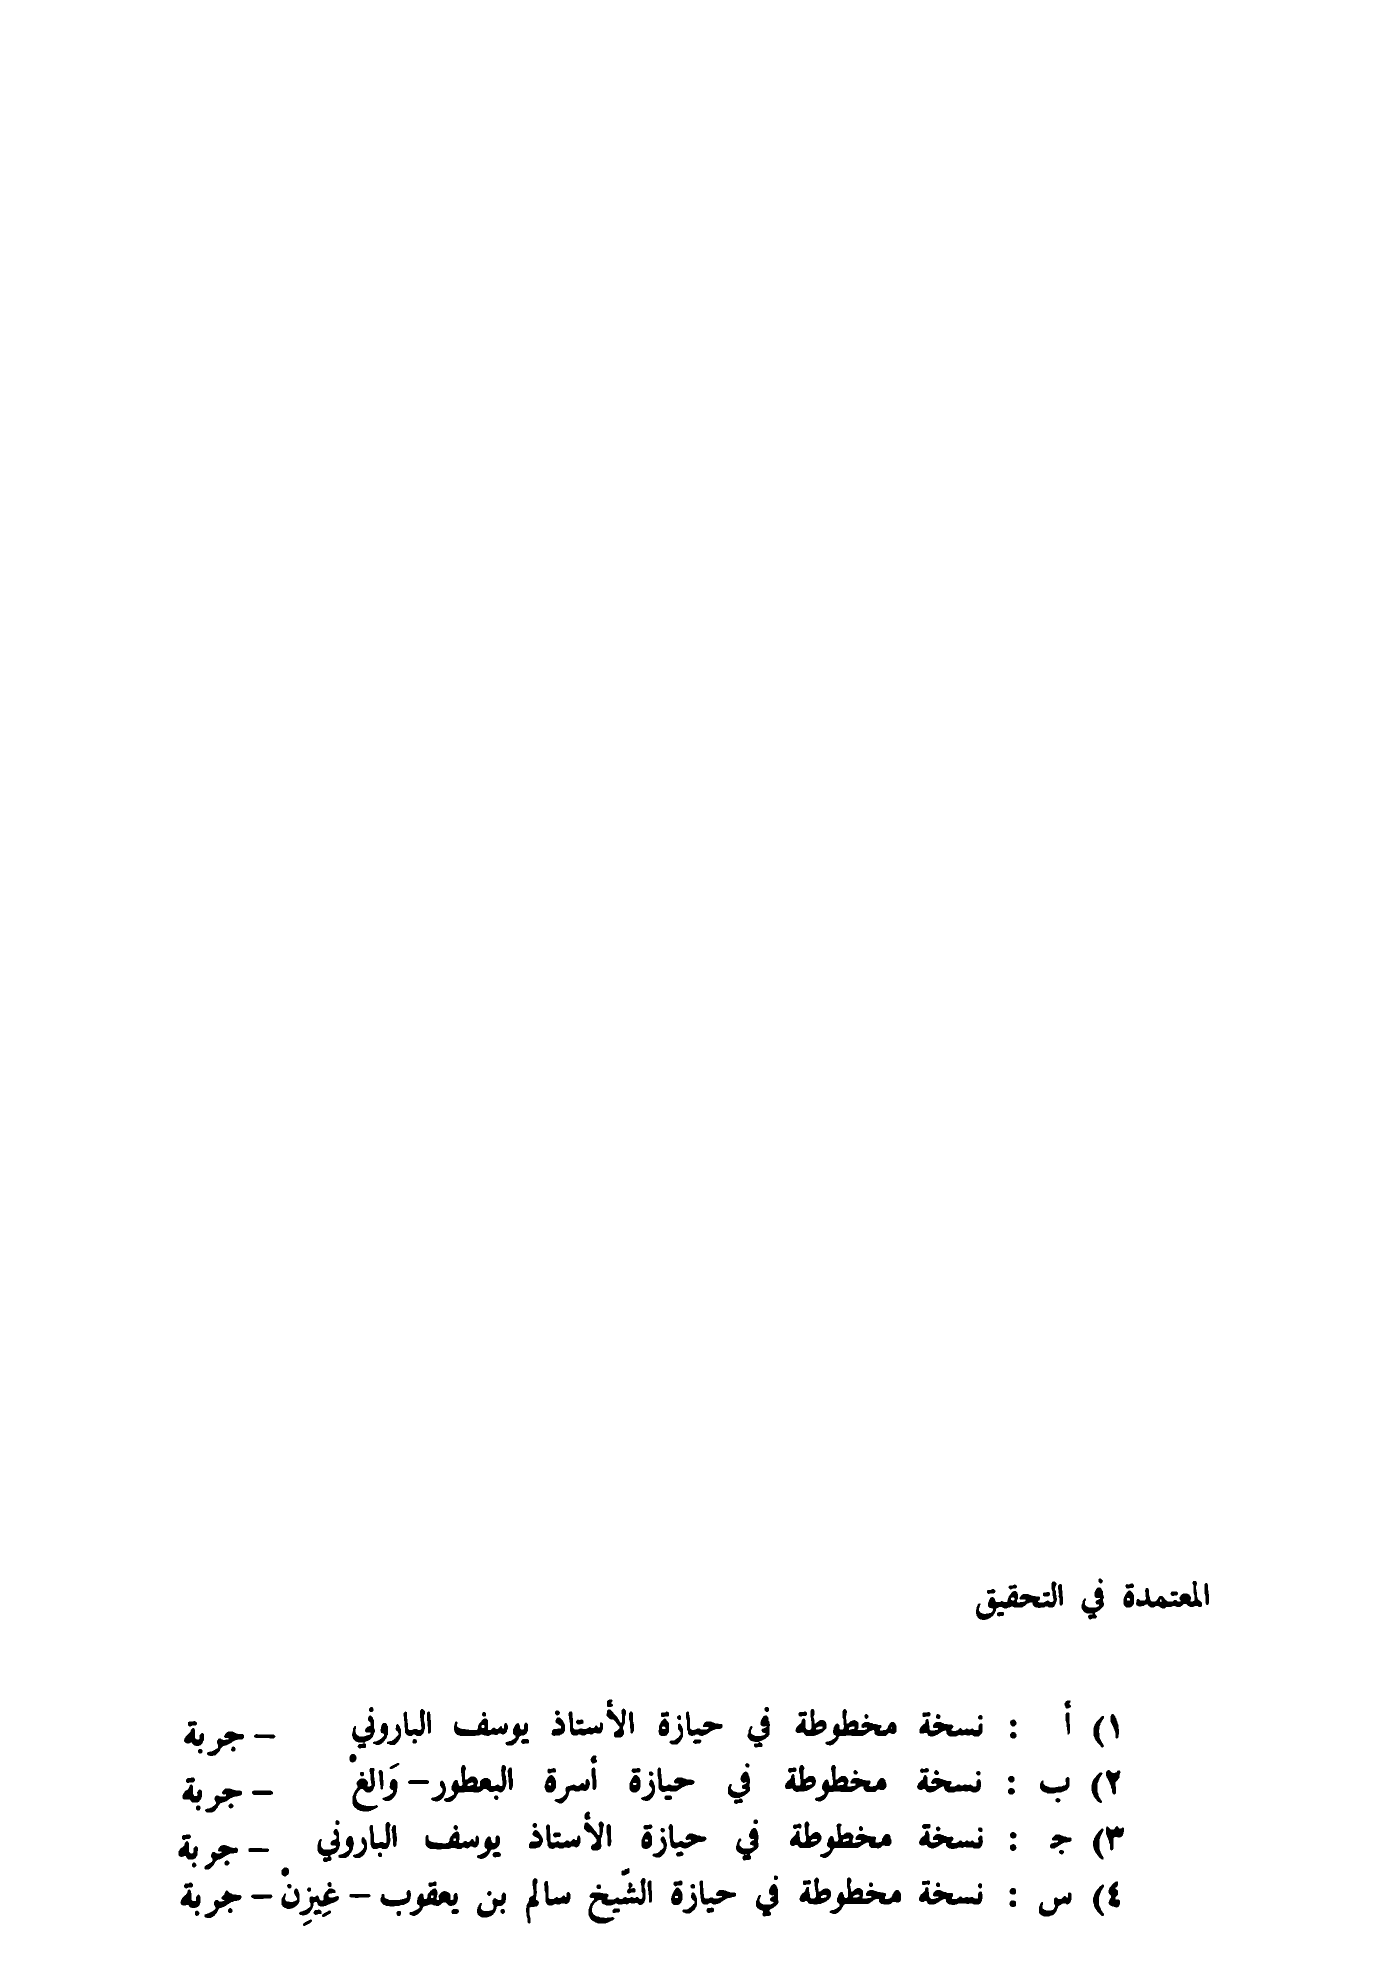 المعتمدة في التحقيق
١) أ : نسخة مخطوطة في حيازة الأستاذ يوسف الباروني – جربة
٢) ب : نسخة مخطوطة في حيازة أسرة البعطور – وَالغْ – جربة
٣) جـ : نسخة مخطوطة في حيازة الأستاذ يوسف الباروني – جربة
٤) س : نسخة مخطوطة في حيازة الشّيخ سالم بن يعقوب – غِيزِنْ – جربة